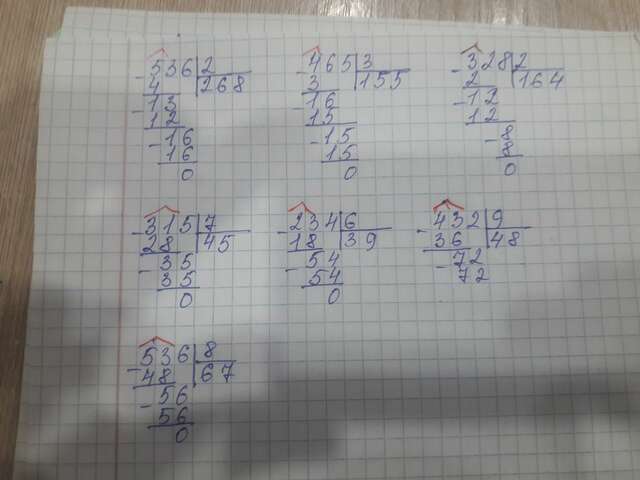 -536|2 -465|3 -328|2
4 |268 3 |155 2 |164
-13 -16 -12
12 15 12
-16 -15 -8
16 15 8
0 0 0
-315|7 -234|6 -432|9
28 |45 18 |39 36 |48
-35 -54 -72
35 54 72
0 0
-536|8
48 |67
-56
56
0